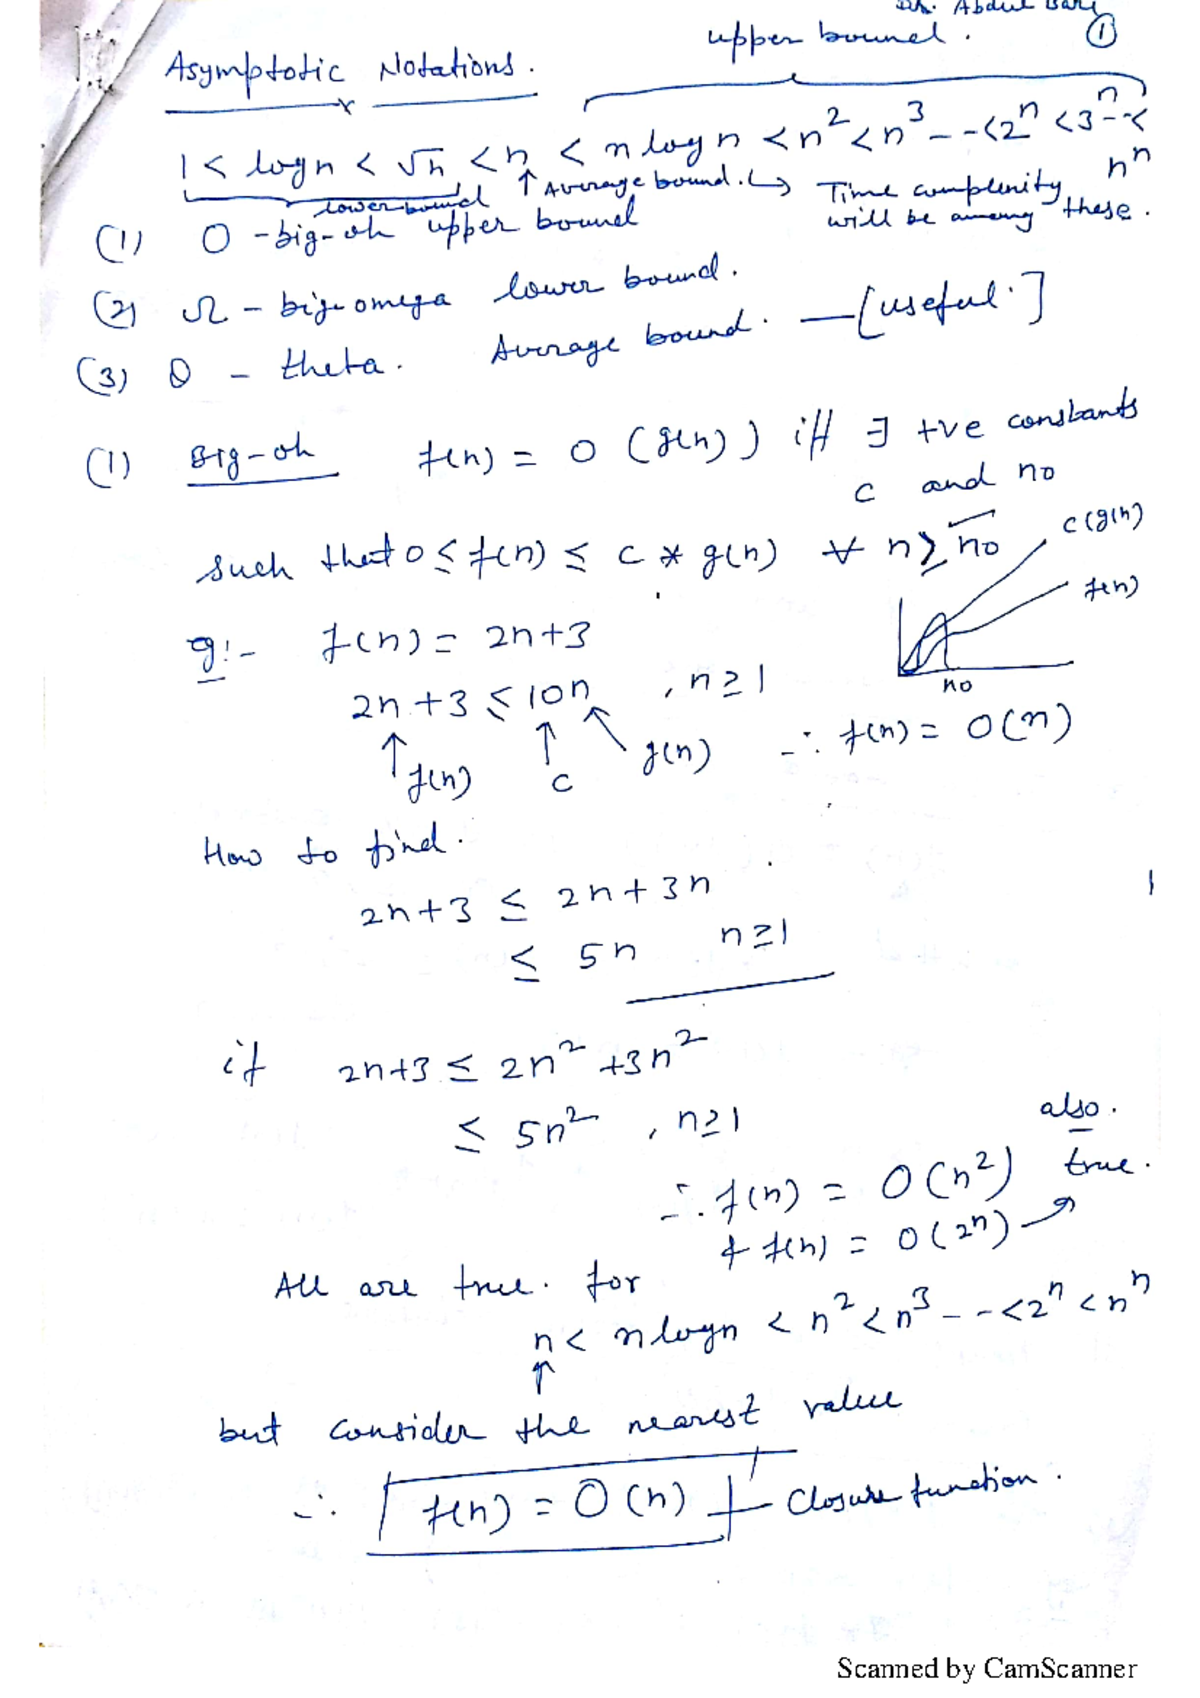 Dr. Abdul Bari
upper bound. ①
Asymptotic Notations.
1 < log n < √n < n < n log n < n² < n³ - - < 2ⁿ < 3ⁿ - - < nⁿ
lower bound ↑ Average bound. ↳ Time complexity will be among these.
(1) O - big-oh upper bound
(2) Ω - big-omega lower bound.
(3) θ - theta. Average bound. — [useful.]
(1) Big-oh f(n) = O (g(n)) iff ∃ +ve constants
c and no
such that 0 ≤ f(n) ≤ c * g(n) ∀ n ≥ no
c(g(n)
f(n)
no
eg:- f(n) = 2n+3
2n+3 ≤ 10n , n ≥ 1
↑ f(n) ↑ c ↖ g(n) ∴ f(n) = O(n)
How to find.
2n+3 ≤ 2n + 3n
≤ 5n n ≥ 1
if 2n+3 ≤ 2n² + 3n²
≤ 5n² , n ≥ 1
∴ f(n) = O(n²) also true.
& f(n) = O(2ⁿ)
All are true. for
n < n log n < n² < n³ - - < 2ⁿ < nⁿ
↑
but consider the nearest value
∴ f(n) = O(n) Closure function.
Scanned by CamScanner